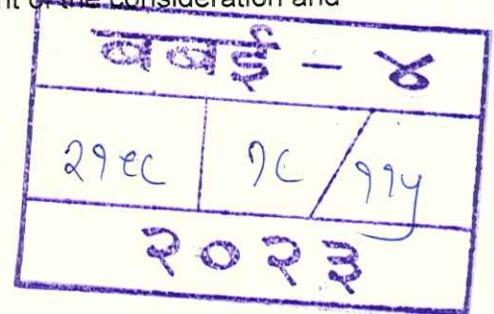 nt of the consideration and
बबई - ४
२१९८ १८/११५
२०२३